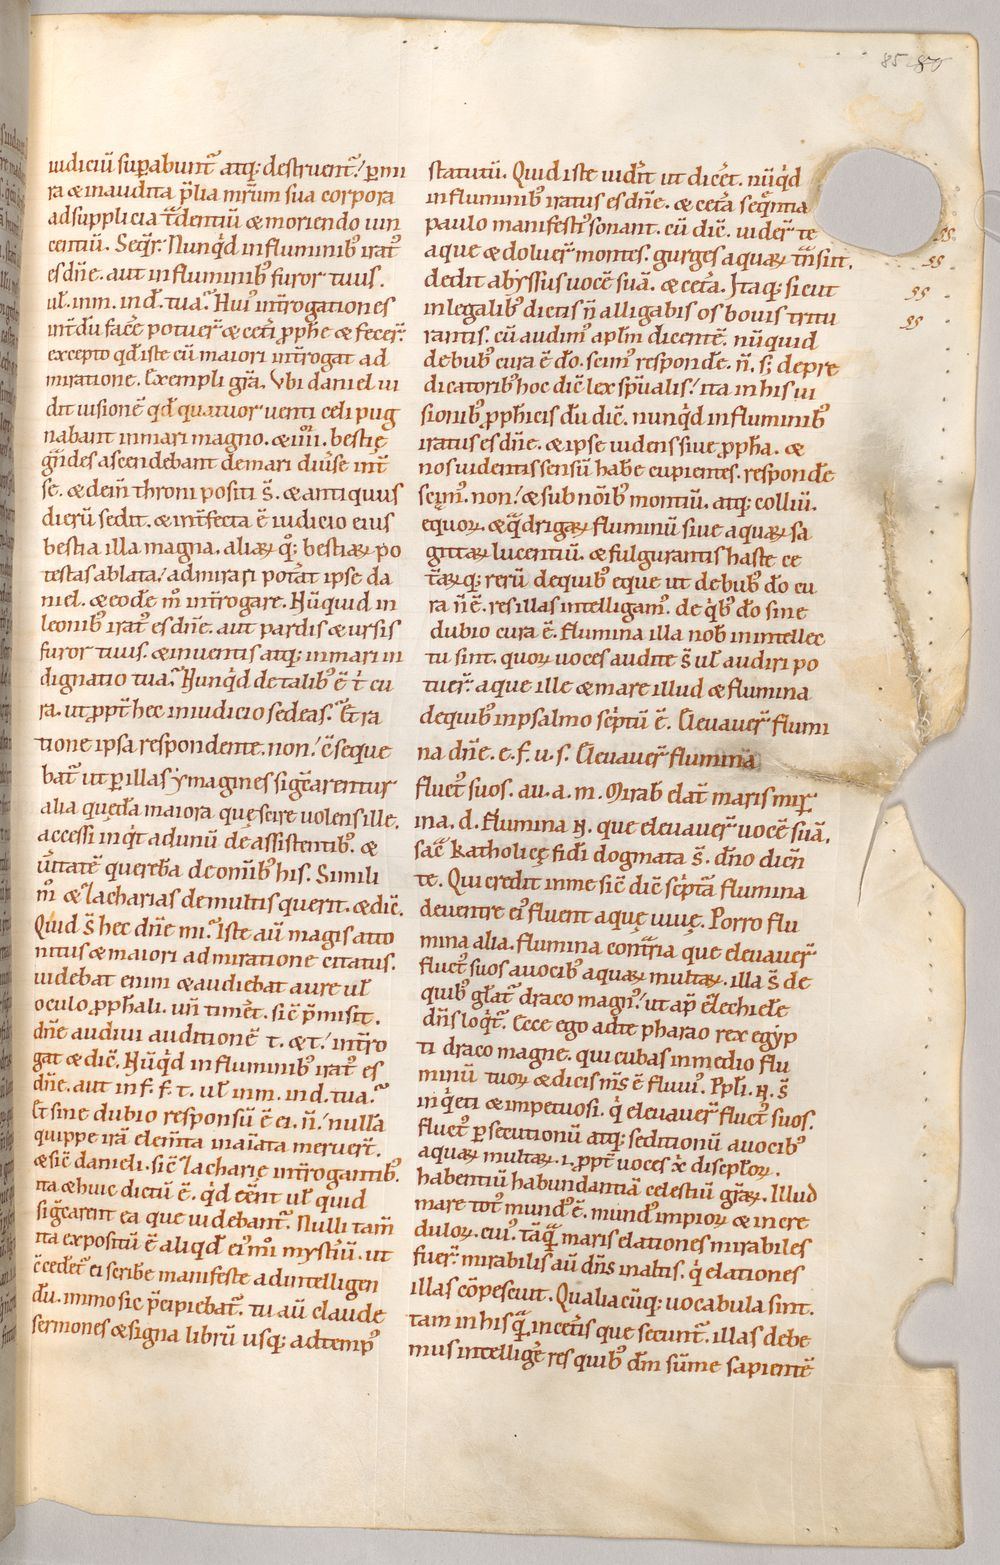 85 86
iudiciū suꝑabunt᷑ atq; destruent᷑. ꝑ mi
ra & inaudita p̄lia mr̄um sua corpora
ad supplicia t᷑dentiū & moriendo uin
centiū. Seqr̄. Nunq̇d in fluminib᷒ irat᷒
es dn̄e. aut in fluminib᷒ furor tuus.
ut̄. inm. ind̄. tua. Hui᷒ int̄rogationes
int̄dū fac̄e potuer̄ & cet̄i ꝓphe & fecer̄.
excepto qd̄ iste cū maiori int̄rogat ad
miratione. Exempli gr̄a. Vbi daniel ui
dit uisionē qd̄ quatuor uenti celi pug
nabant in mari magno. & iiii. bestię
grādes ascendebant de mari diūse int̄
se. & dem̄ throni positi s̄. & antiquus
dierū sedit. & int̄fecta ē iudicio eius
bestia illa magna. aliaꝝ q᷒; bestiaꝝ po
testas ablata. admirari potāt ipse da
niel. & eodē m̊ int̄rogare. Nūquid in
leonib᷒ irat᷒ es dn̄e. aut pardis & ursis
furor tuus. & inuentis atq; in mari in
dignatio tua. Nunq̇d de talib᷒ ē t᷑ cu
ra. ut ꝓpt̄ hec in iudicio sedeas. Et ra
tione ipsa respondente. non. ē seque
bat᷑ ut ꝑ illas ymagines sig̅carentur
alia quędā maiora quę scire uolens ille.
accessi inq̇t ad unū de assistentib᷒. &
ūitatē querebā de om̄ib᷒ his. Simili
m̊ & zacharias de multis querit. & dic̄.
Quid s̄ hec dn̄e mi. Iste au᷑ magis atto
nitus & maiori admiratione citatus.
uidebat enim & audiebat aure ut̄
oculo ꝓphali. un̄ timet᷑. sic̄ p̄misit.
dn̄e audiui auditionē t. & t. int̄ro
gat & dic̄. Nūq̇d in fluminib᷒ irat᷒ es
dn̄e. aut in f. f. t. ut̄ inm. ind. tua.
Et sine dubio responsū ē ei. n̄. nulla
quippe irā elem̄ta inaīata meruer̄t.
& sic̄ danieli. sic̄ zacharię int̄rogantib᷒.
ita & huic dictū ē. q̇d eēnt ut̄ quid
sig̅carent ea que uidebant᷑. Nulli tam̄
ita expositū ē aliqd̄ ei᷒mi mysteriū. ut
ēcedet᷑ ei scribe manifeste ad intelligen
dū. immo sic p̄cipiebat᷑. tu au᷑ claude
sermones & signa librū usq; ad temp᷒
statutū. Quid iste uidit᷑ ut dicet᷑. nūq̇d
in fluminib᷒ iratus es dn̄e. & cet̄a seq̄ntia
paulo manifesti᷒ sonant. cū dic̄. uider̄ te
aque & doluer̄ montes. gurges aquaꝝ tn̄siit.
dedit abyssus uocē suā. & cet̄a. Itaq; sicut
in legalib᷒ dictis n̄ alligabis os bouis tritu
rantis. cū audim᷒ aplm̄ dicentē. nūquid
de bub᷒ cura ē dō. scim᷒ respondē. n̄. s; de pre
dicatorib᷒ hoc dic̄ lex sp̄ualis. ita in his ui
sionib᷒ ꝓphicis dū dic̄. nunq̇d in fluminib᷒
iratus es dn̄e. & ipse uidens siue ꝓph̄a. &
nos uidentis sensū habē cupientes. respondē
scim᷒. non. & sub nōib᷒ montiū. atq; colliū.
equoꝝ. & q̄drigaꝝ fluminū siue aquaꝝ sa
gittaꝝ lucentiū. & fulgurantis haste ce
t̄aꝝ q; rerū de quib᷒ eque ut de bub᷒ dō cu
ra n̄ ē. res illas intelligam᷒. de q̇b᷒ dō sine
dubio cura ē. Flumina illa nob̄ in intellec
tu sint. quoꝝ uoces audite s̄ ut̄ audiri po
tuer̄. aque ille & mare illud & flumina
de quib᷒ in psalmo sc̄ptū ē. Eleuauer̄ flumi
na dn̄e. e. f. u. s. Eleuauer̄ flumina
fluct᷒ suos. au. a. m. Mirab̄ elat᷑ maris mir̄.
in a. d. Flumina ꞃ. que eleuauer̄ uocē suā.
sac̄ katholicę fidi dogmata s̄. dn̄o dicn̄
te. Qui credit in me sic̄ dic̄ sc̄ptā flumina
de uentre ei᷒ fluent aquę uiuę. Porro flu
mina alia. flumina cont̄ria que eleuauer̄
fluct᷒ suos a uocib᷒ aquaꝝ multaꝝ. illa s̄ de
quib᷒ glāt᷑ draco magn᷒. ut ap̄ ezechielē
dn̄s loq̇t᷑. Ecce ego ad te pharao rex egyp
ti draco magne. qui cubas in medio flu
minū tuoꝝ & dicis m̄s ē fluui᷒. Ppl̄i. ꞃ. s̄
inq̇eti & impetuosi. q̇ eleuauer̄ fluct᷒ suos.
fluct᷒ ꝑsecutionū atq; seditionū a uocib᷒
aquaꝝ multaꝝ. i. ꝓpt̄ uoces xp̄i discip̄loꝝ.
habentiū habundantiā celestiū gr̄aꝝ. Illud
mare tot᷒ mund᷒ ē. mund᷒ impioꝝ & incre
duloꝝ. cui᷒. tāq̄ maris elationes mirabiles
fuer̄. mirabilis au᷑ dn̄s in altis. q̇ elationes
illas cōpescuit. Qualiacūq; uocabula sint.
tam in his q̄ in cet̄is que secunt᷑. illas debe
mus intelliḡe res quib᷒ dm̄ sūme sapientē